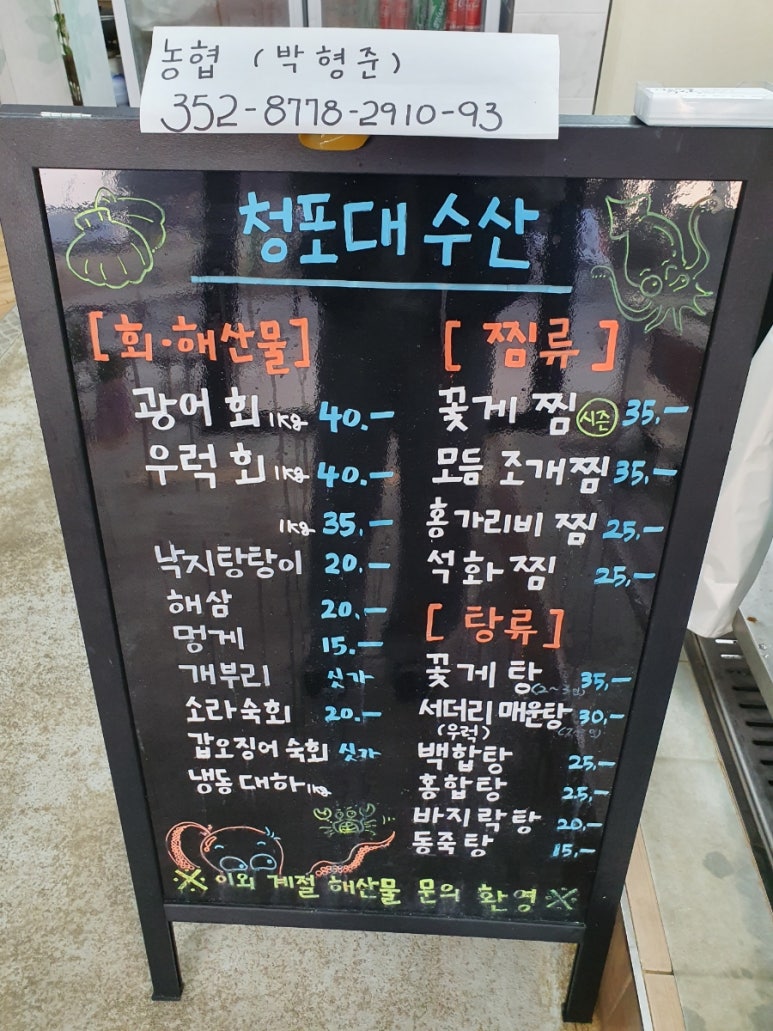 농협 (박형준)
352-8778-2910-93
청포대 수산
[회·해산물]
광어 회 1kg 40.-
우럭 회 1kg 40.-
1kg 35.-
낙지탕탕이 20.-
해삼 20.-
멍게 15.-
개부리 싯가
소라숙회 20.-
갑오징어 숙회 싯가
냉동 대하 1kg
[찜류]
꽃게 찜 시즌 35.-
모듬 조개찜 35.-
홍가리비 찜 25.-
석화찜 25.-
[탕류]
꽃게 탕 (2~3인) 35.-
서더리 매운탕 30.-
(우럭)
백합탕 25.-
홍합탕 25.-
바지락탕 20.-
동죽탕 15.-
※ 이외 계절 해산물 문의 환영 ※